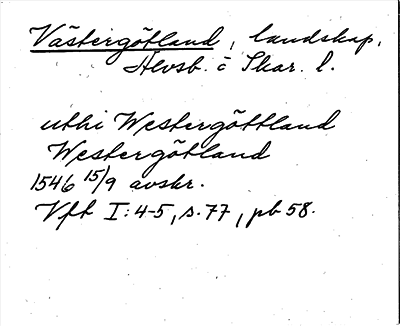 Västergötland, landskap,
Älvsb. o Skar. l.
uthi Westergöttland
Westergötland
1546 15/9 avskr.
Vft I:4-5, s. 77, pb 58.